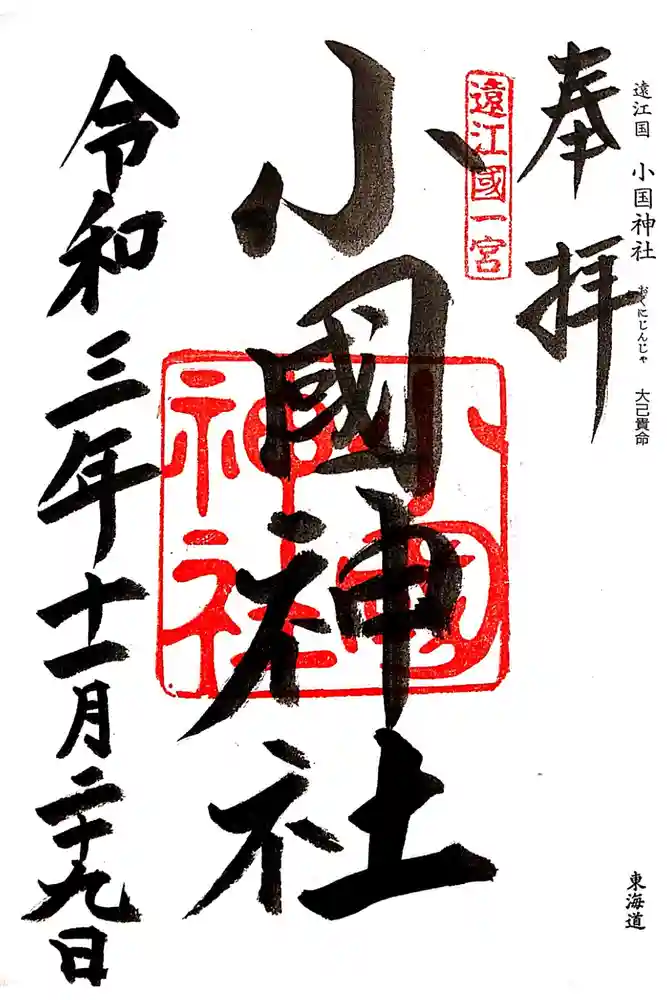 遠江国 小国神社 おくにじんじゃ 大己貴命
東海道
奉拝
遠江國一宮
小國神社
小國
神社
令和三年十一月二十九日